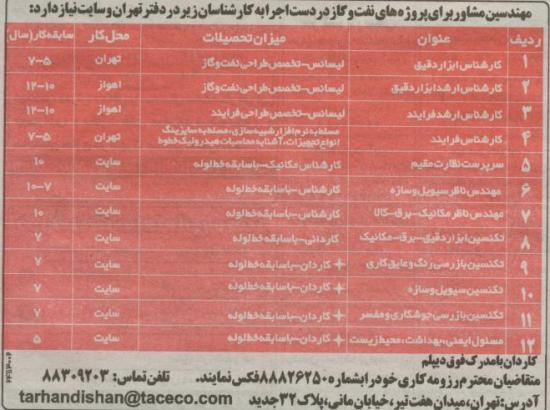 مهندسین مشاور برای پروژه های نفت و گاز در دست اجرا به کارشناسان زیر در دفتر تهران و سایت نیاز دارد:
ردیف عنوان میزان تحصیلات محل کار سابقه کار (سال)
۱ کارشناس ابزار دقیق لیسانس-تخصص طراحی نفت و گاز تهران ۷-۵
۲ کارشناس ارشد ابزار دقیق لیسانس-تخصص طراحی نفت و گاز اهواز ۱۲-۱۰
۳ کارشناس ارشد فرایند لیسانس-تخصص طراحی فرایند اهواز ۱۲-۱۰
۴ کارشناس فرایند مسلط به نرم افزار شبیه سازی، مسلط به سایزینگ انواع تجهیزات، آشنا به محاسبات هیدرولیک خطوط تهران ۷-۵
۵ سرپرست نظارت مقیم کارشناس مکانیک-با سابقه خط لوله سایت ۱۰
۶ مهندس ناظر سیویل و سازه کارشناس-با سابقه خط لوله سایت ۱۰-۷
۷ مهندس ناظر مکانیک-برق-کالا کارشناس-با سابقه خط لوله سایت ۱۰
۸ تکنسین ابزار دقیق-برق-مکانیک کاردانی-با سابقه خط لوله سایت ۷
۹ تکنسین بازرسی رنگ و عایق کاری + کاردان-با سابقه خط لوله سایت ۷
۱۰ تکنسین سیویل و سازه + کاردان-با سابقه خط لوله سایت ۷
۱۱ تکنسین بازرسی جوشکاری و مفسر + کاردان-با سابقه خط لوله سایت ۷
۱۲ مسئول ایمنی، بهداشت، محیط زیست + کاردان-با سابقه خط لوله سایت ۵
کاردان با مدرک فوق دیپلم
متقاضیان محترم رزومه کاری خود را بشماره ۸۸۸۲۶۲۵۰ فکس نمایند. تلفن تماس: ۸۸۳۰۹۲۰۳
آدرس: تهران، میدان هفت تیر، خیابان مانی، پلاک ۳۲ جدید tarhandishan@taceco.com